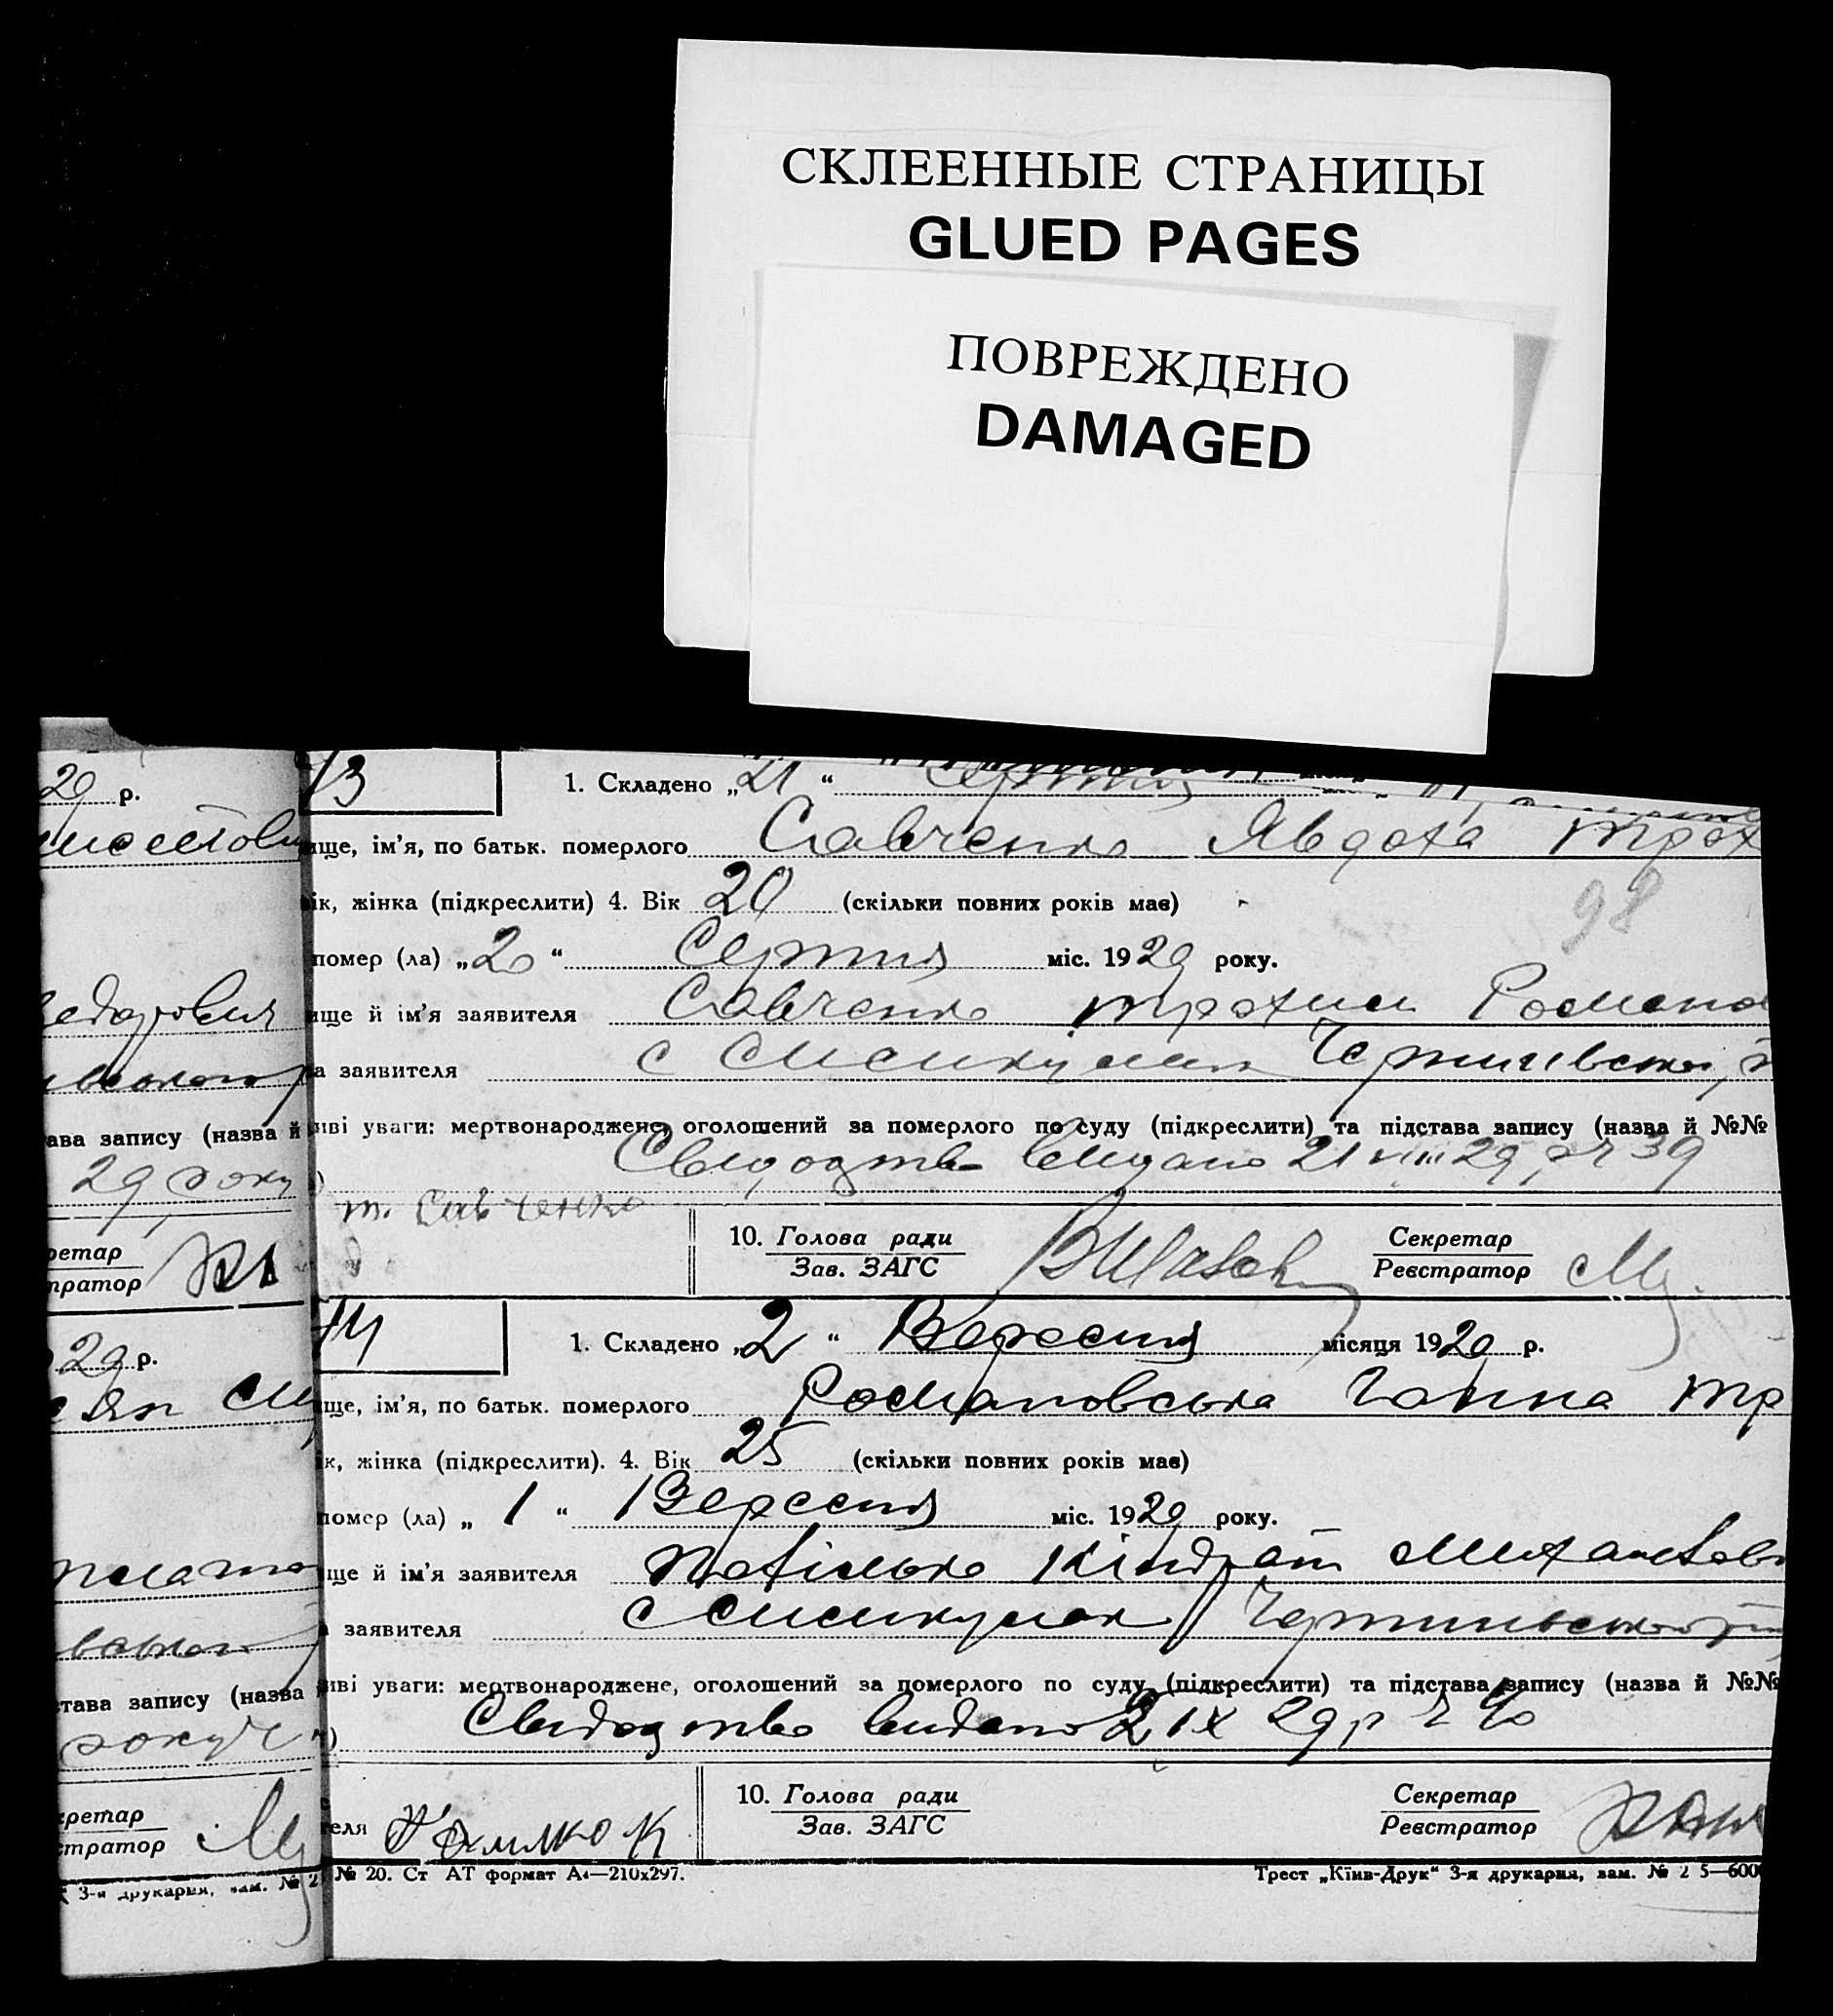 СКЛЕЕННЫЕ СТРАНИЦЫ
GLUED PAGES
ПОВРЕЖДЕНО
DAMAGED
29 р.
ава запису (назва й
29 року
ретар
тратор
29 р.
става запису (назва
року
кретар
стратор
3-я друкарня, зам. № 2
73
1. Складено „21“ Серпня
ище, ім'я, по батьк. померлого Савченко Явдоха Трох
ік, жінка (підкреслити) 4. Вік 20 (скільки повних років має)
98
помер (ла) „20“ Серпня міс. 1929 року.
ище й ім'я заявителя Савченко Трохим Романо
а заявителя с
иві уваги: мертвонароджене, оголошений за померлого по суду (підкреслити) та підстава запису (назва й №№
Свідоцтво видано 21 VIII 29 р ч 39
т. Савченко
10. Голова ради
Зав. ЗАГС
Секретар
Реєстратор
74
1. Складено „2“ Вересня місяця 1929 р.
ще, ім'я, по батьк. померлого Романовська Ганна Тр
к, жінка (підкреслити). 4. Вік 25 (скільки повних років має)
помер (ла) „1“ Вересня міс. 1929 року.
ще й ім'я заявителя Кіндрат Михайлов
заявителя с
иві уваги: мертвонароджене, оголошений за померлого по суду (підкреслити) та підстава запису (назва й №№
Свідоцтво видано 2 IX 29 р ч 40
теля
10. Голова ради
Зав. ЗАГС
Секретар
Реєстратор
№ 20. Ст АТ формат А4—210x297.
Трест „Київ-Друк“ 3-я друкарня, зам. № 2 5—600